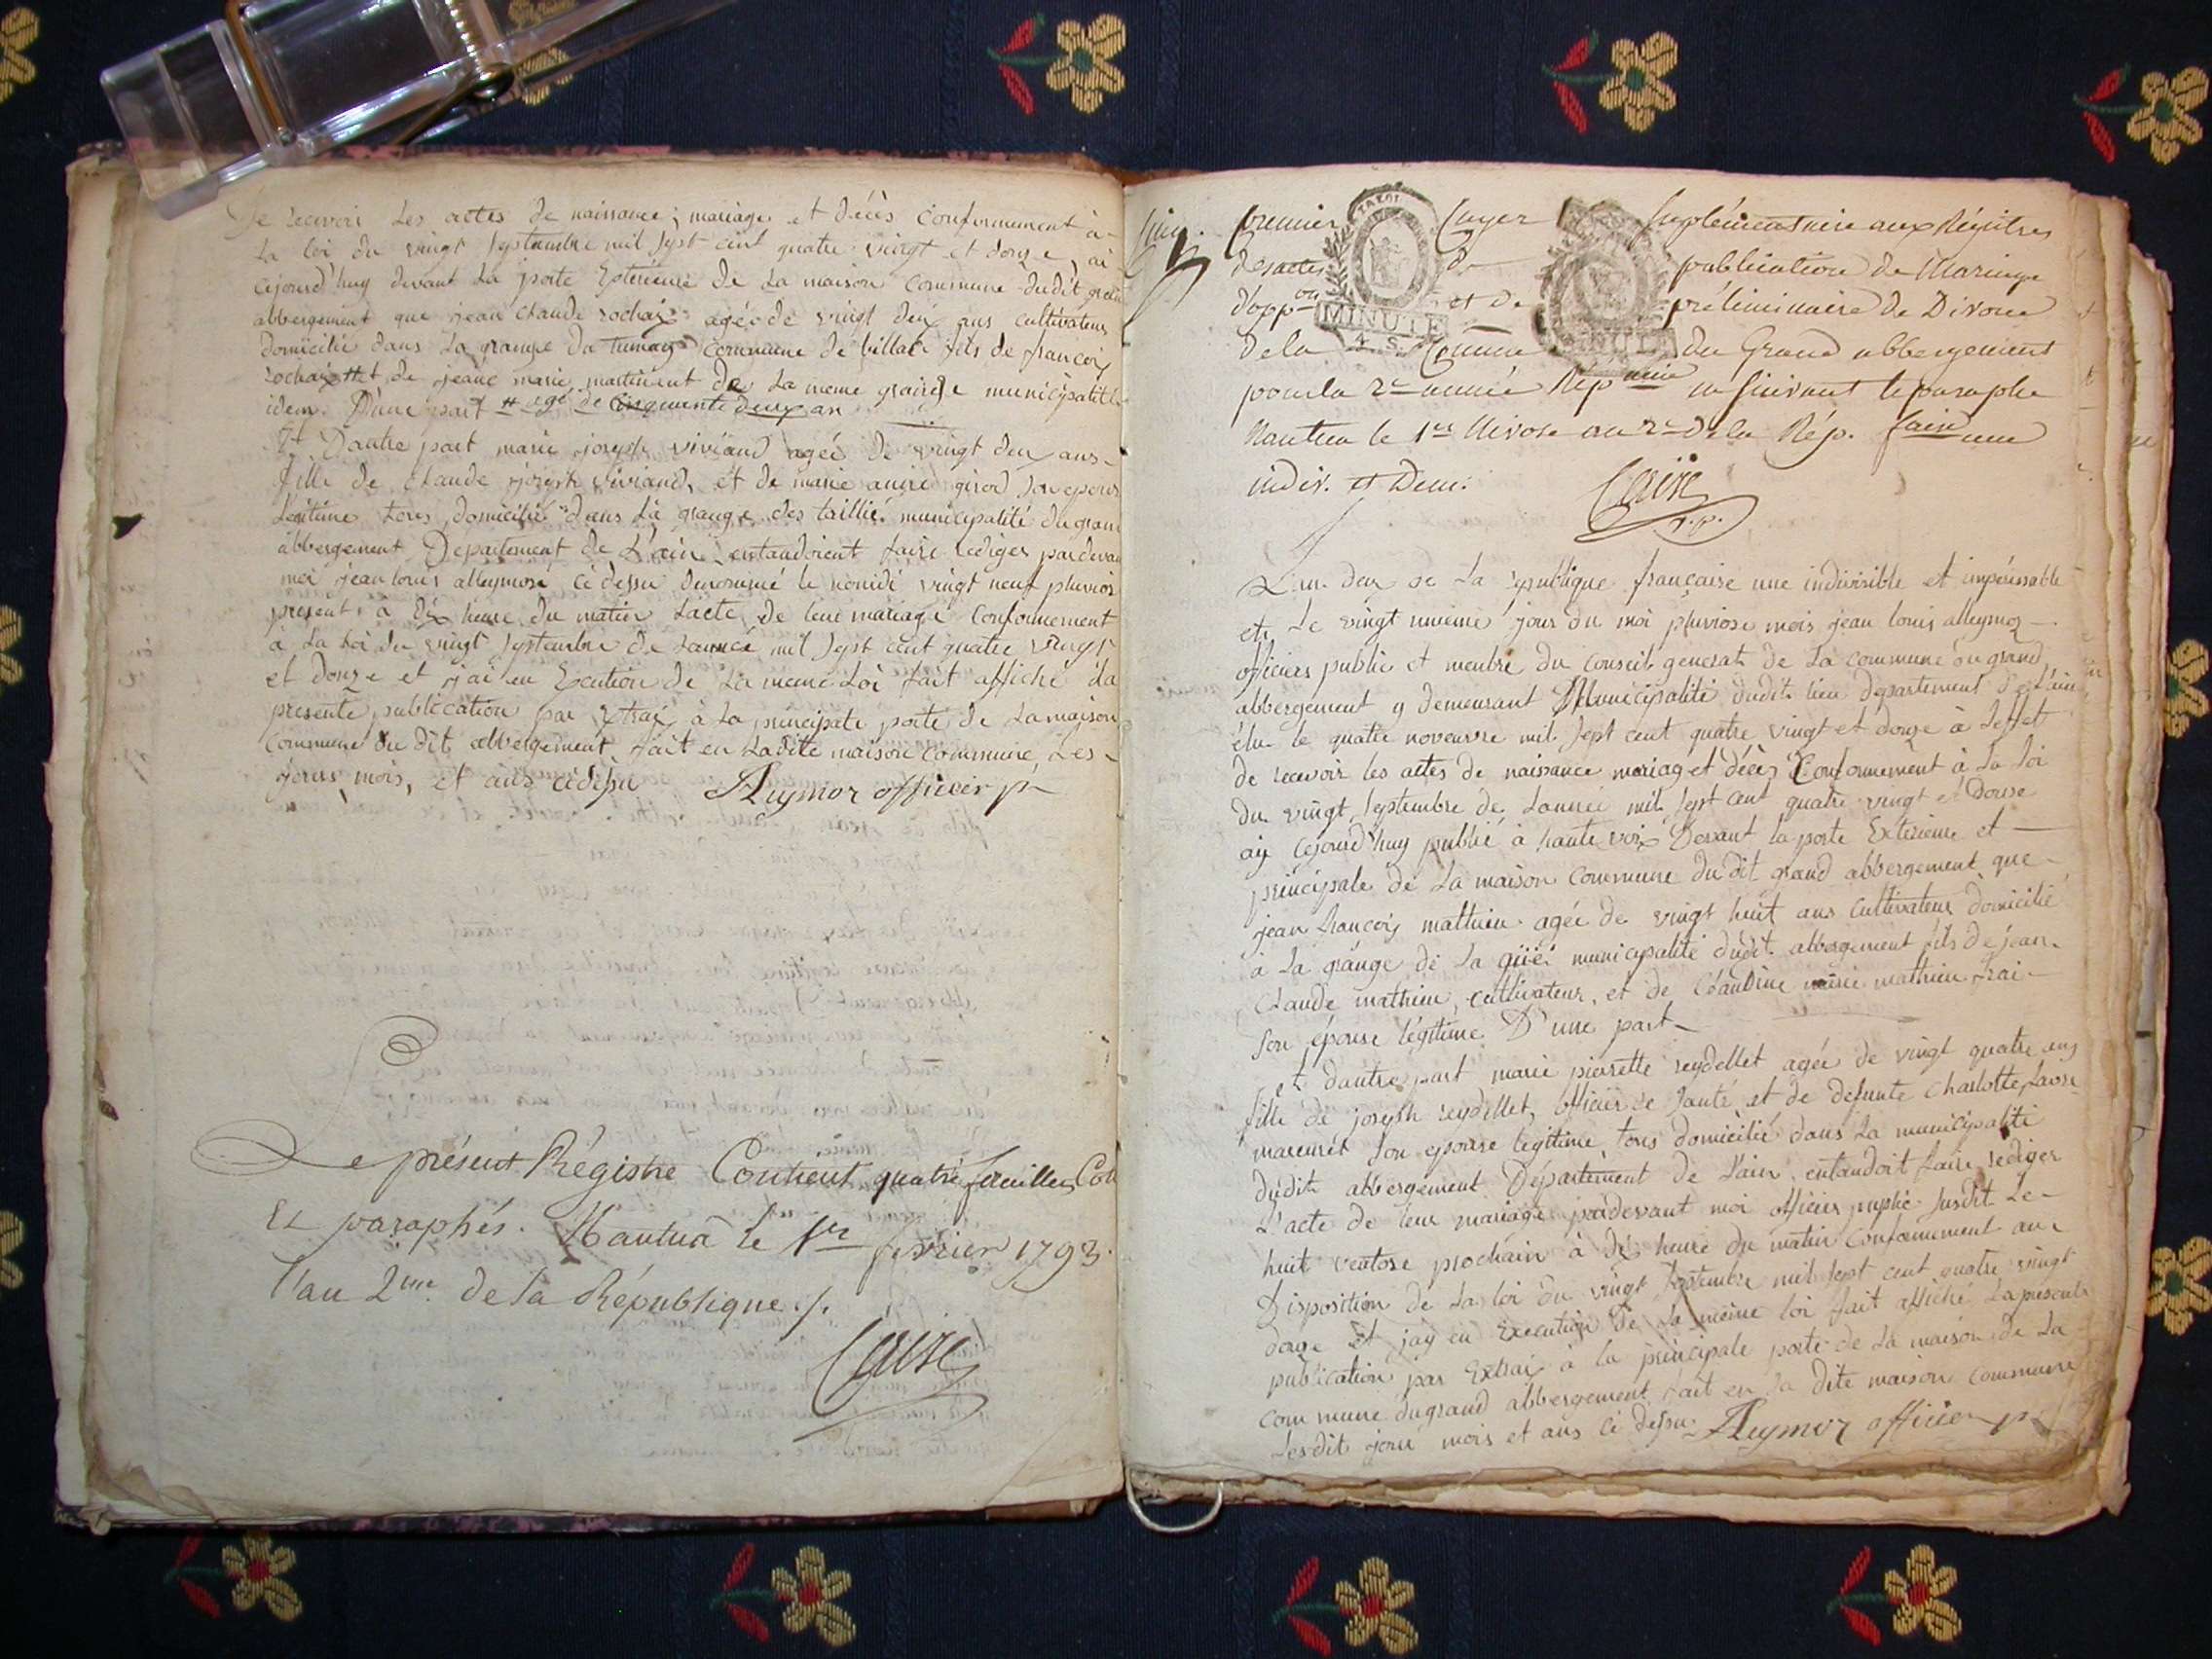 de recevoir Les actes de naissance, mariage et décès conformement à
La loi du vingt septembre mil sept cent quatre vingt et donze, ai
cejourd'huy devant La porte Exterieure de La maison Commune dudit grand
abbergement que jean Claude rochaix agée de vingt deux ans cultivateur
domicilié dans La grange du commune de billac fils de françois
rochaix # et de jeane marie martinent de La meme grange municipalité
idem. D'une part # agé de Cinquante deux an
Et Dautre part marie joseph viviand agée de vingt deux ans
fille de Claude joseph viviand, et de marie girod son epouse
Légitime tous domicilié dans la grange des taillié municipalité du grand
abbergement Departement de L'ain entandoient faire rediger pardevant
moi jean louis alleymoz ci dessu denommé le nonidi vingt neuf pluviose
present à dix heure du matin Lacte de leur mariage Conformement
à La Loi du vingt septembre de Lannée mil sept cent quatre vingt
et donze et j'ai en Ecution de La meme Loi fait affiché La
presente publication par Extrai à La principale porte de La maison
Commune du dit abbergement fait en Ladite maison commune, Les
jours, mois, et ans cidessu Aleymoz officier p
Le présent Régistre Contient quatre feuilles Cotés
Et paraphés. Nantua le 1er fevrier 1793.
l'an 2me de la République ./.
Caire
premier suplémentaire aux Régistres
des actes de publication de Mariage
d'oppon et de préliminaire de Divorce
MINUTE
de la Comune du Grand abbergement
pour la 2e année Répne en suivant le paraphe
Nantua le 1er Nivose an 2e de la Rép. une
indiv. et Dem.
Caire
L'an deux de La republique française une indivisible et impérissable
et Le vingt unieme jour du moi pluviose mois jean louis alleymoz
officier public et menbre du conseil general de La commune du grand
abbergement y demeurant Municipalité dudit lieu departement de Lain
élu le quatre novenvre mil sept cent quatre vingt et donze à Leffet
de recevoir les actes de naissance mariag et décès Conformement à La loi
du vingt septembre de Lannée mil sept cent quatre vingt et Donze
aÿ cejourd'huy publié à haute voix Devant la porte Exterieure et
principale de La maison Commune du dit grand abbergement que
jean françois mathieu agée de vingt huit ans Cultivateur domicilié
à La grange de La municipalité dudit abbergement fils de jean
Claude mathieu, cultivateur, et de Claudine marie mathieu
son épouse légitime D'une part
et dautre part marie pierette reydellet agée de vingt quatre ans
fille de joseph reydellet, officier de santé et de defunte Charlotte
son epouse legitime, tous domicilié dans La municipalité
dudit abbergement Département de L'ain, entandoit faire rediger
L'acte de leur mariage pardevant moi officier puplic susdit Le
huit ventose prochain à dix heure du matin conformement aux
Disposition de La loi du vingt septembre mil sept cent quatre vingt
donze Et jay en Execution de La même loi fait affiché La presente
publication par Extrai à la principale porte de La maison de La
commune du grand abbergement fait en La dite maison commune
Lesdit jour mois et ans ci dessu Aleymoz officier p